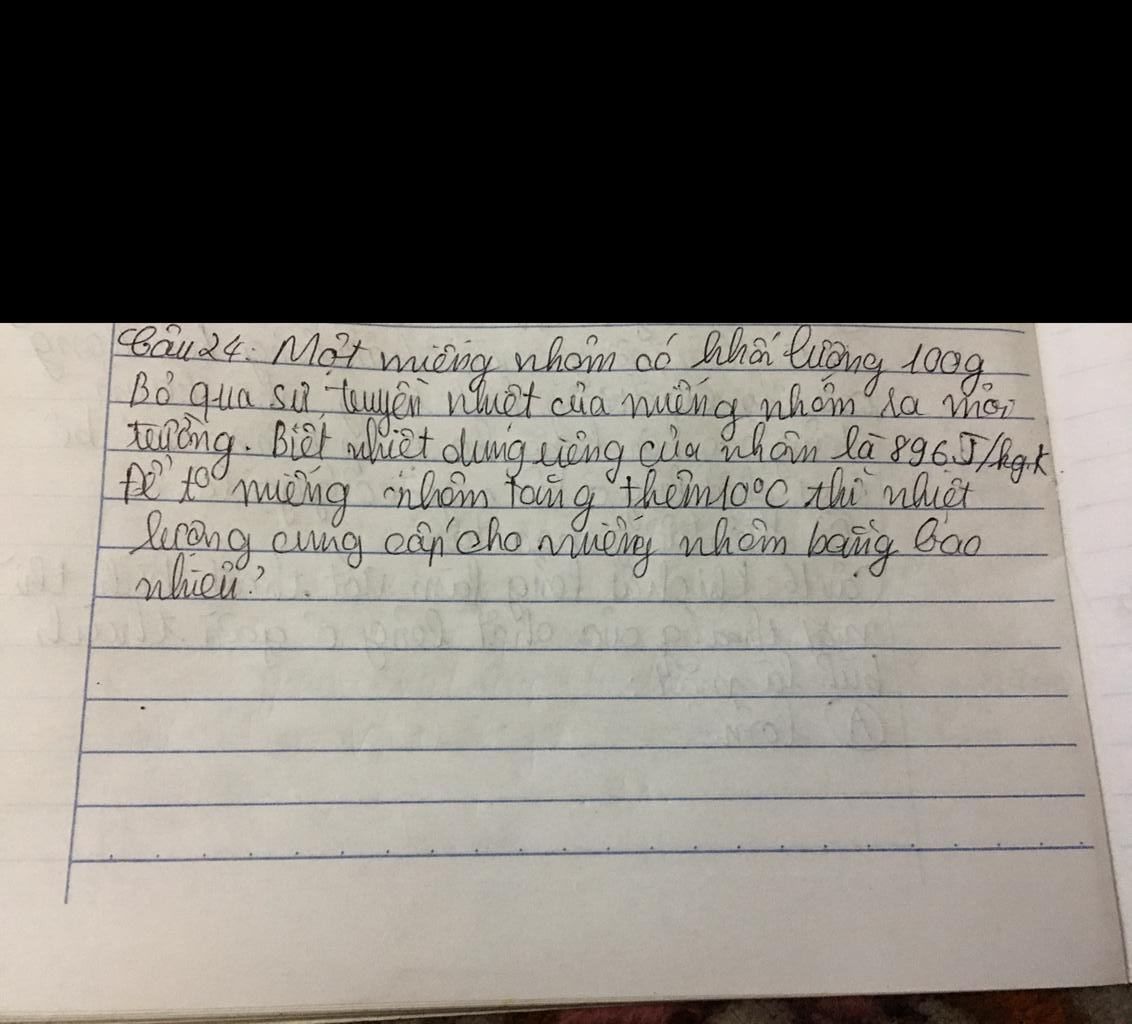 Câu 24. Một miếng nhôm có khối lượng 100g
Bỏ qua sự truyền nhiệt của miếng nhôm ra môi
trường. Biết nhiệt dung riêng của nhôm là 896 J/kg.K
Để t° miếng nhôm tăng thêm 10°C thì nhiệt
lượng cung cấp cho miếng nhôm bằng bao
nhiêu?